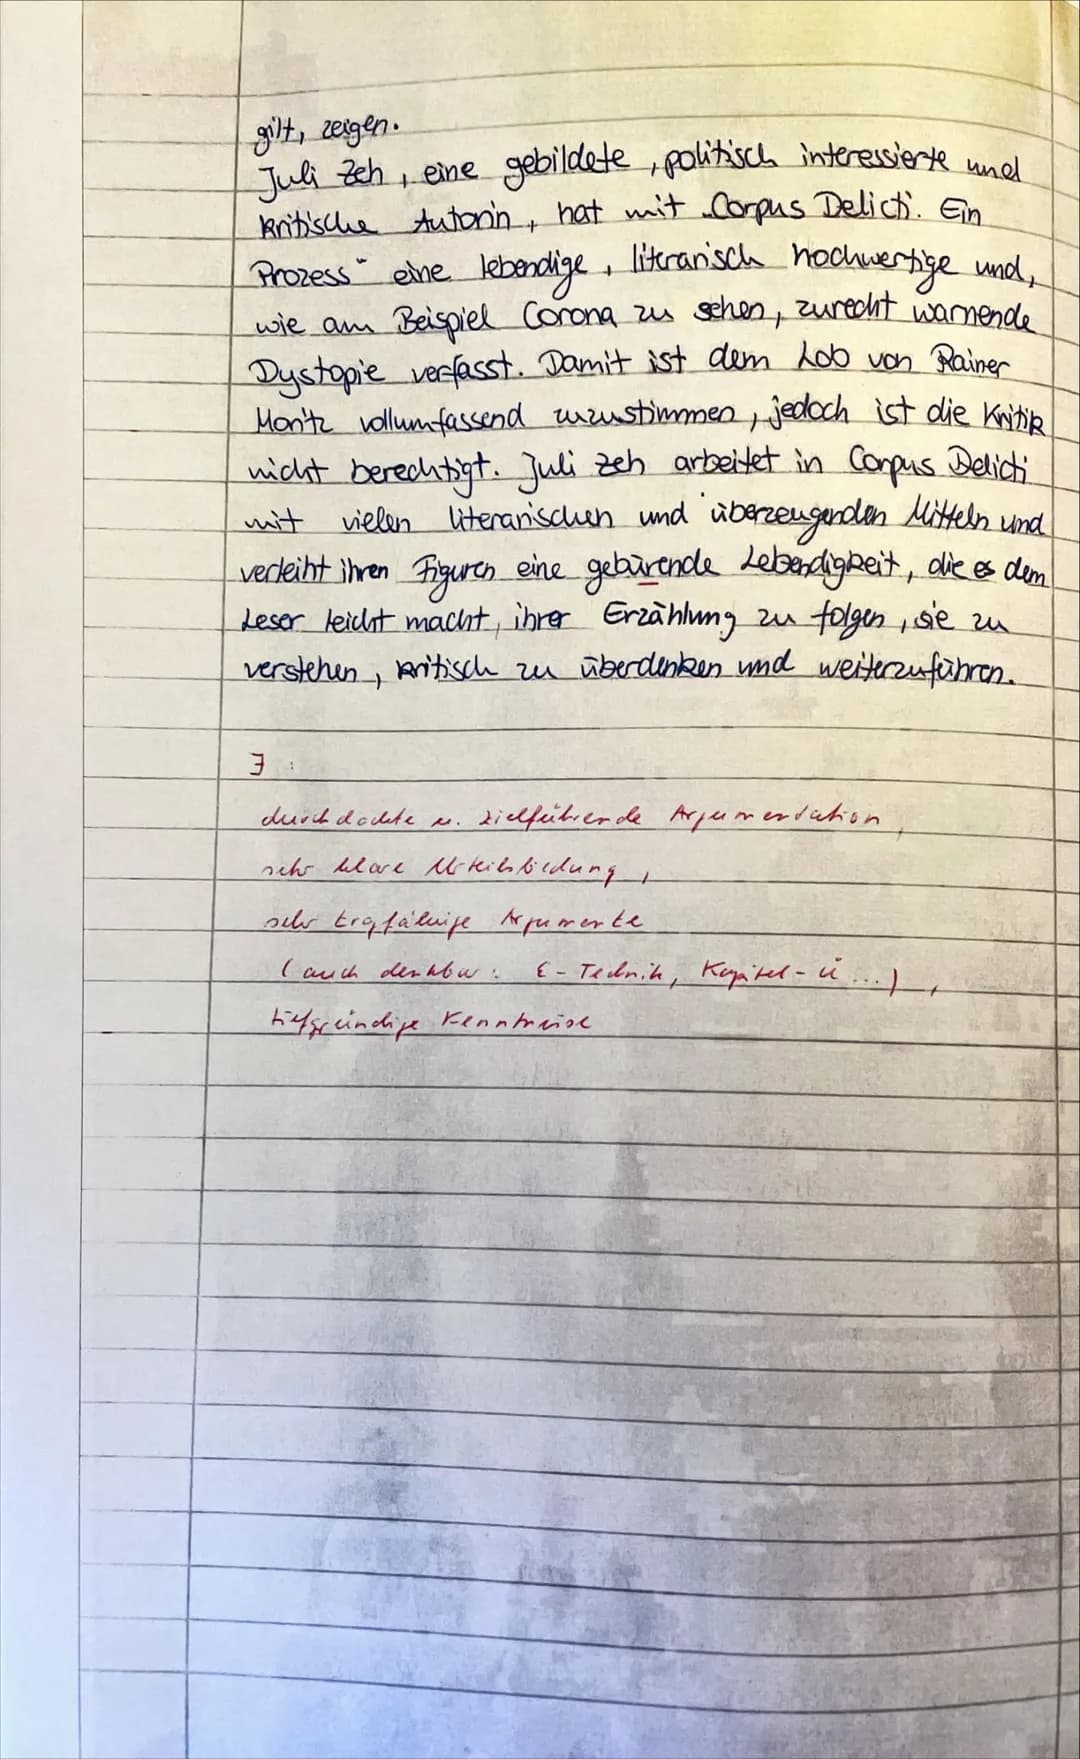 gilt, zeigen.
Juli Zeh, eine gebildete, politisch interessierte und
kritische Autorin, hat mit „Corpus Delicti. Ein
Prozess" eine lebendige, literarisch hochwertige und,
wie am Beispiel Corona zu sehen, zurecht warnende
Dystopie verfasst. Damit ist dem Lob von Rainer
Moritz vollumfassend zuzustimmen, jedoch ist die Kritik
nicht berechtigt. Juli Zeh arbeitet in Corpus Delicti
mit vielen literarischen und überzeugenden Mitteln und
verleiht ihren Figuren eine gebürende Lebendigkeit, die es dem
Leser leicht macht, ihrer Erzählung zu folgen, sie zu
verstehen, kritisch zu überdenken und weiterzuführen.
durchdachte u. zielführende Argumentation,
sehr klare Urteilsbildung,
sehr tragfähige Argumente
(auch denkbar: E-Technik, Kapitel-Ü...),
tiefgründige Kenntnisse